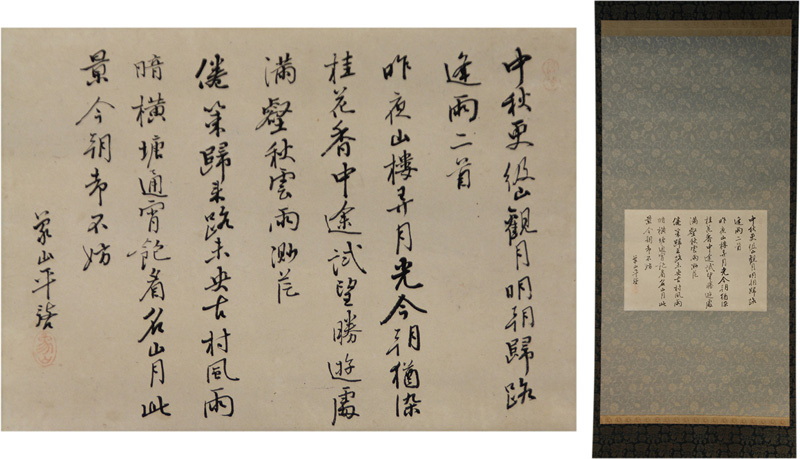 中秋更級山觀月明朝歸路
逢雨二首
昨夜山樓弄月光今朝猶染
桂花香中途試望勝遊處
滿壑秋雲雨渺茫
倦策歸来路未央古村風雨
暗横塘通宵飽看名山月此
景今朝却不妨
象山平啓